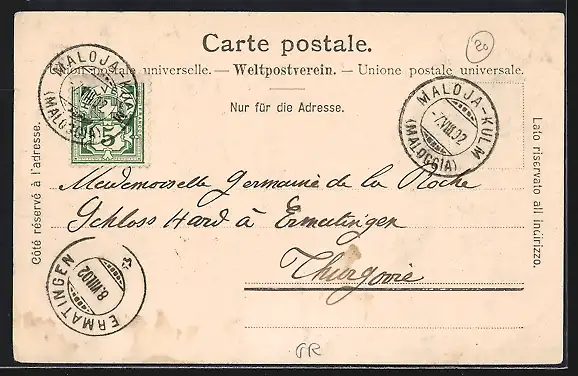 20
Carte postale.
Union postale universelle. — Weltpostverein. — Unione postale universale.
Nur für die Adresse.
MALOJA-KULM
(MALOGGIA)
5
MALOJA-KULM
-7.VIII.02
(MALOGGIA)
Côté réservé à l'adresse.
Lato riservato all indirizzo.
Mademoiselle Germaine de la Roche
Schloss Hard à Ermatingen
Thurgovie
ERMATINGEN
8.VIII.02
-3
GR